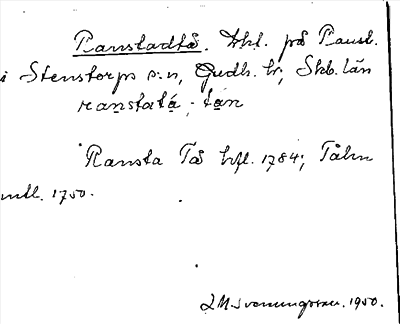 Ranstadtå. Trkt. på Ranst.
i Stenstorps s:n, Gudh. hr, Skb. län
ranstatá, -tån
Ransta Tå hfl. 1784; Tåhn
mtl. 1750.
J.M. Svenungsson. 1950.